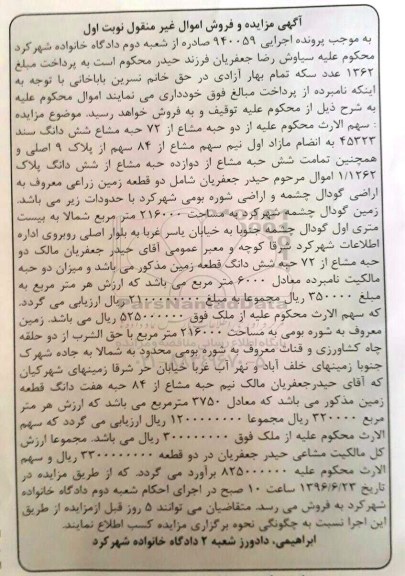 آگهی مزایده و فروش اموال غیر منقول نوبت اول
به موجب پرونده اجرایی ۹۴۰۰۵۹ صادره از شعبه دوم دادگاه خانواده شهرکرد
محکوم علیه سیاوش رضا جعفریان فرزند حیدر محکوم است به پرداخت مبلغ
۱۳۶۲ عدد سکه تمام بهار آزادی در حق خانم نسرین باباخانی با توجه به
اینکه نامبرده از پرداخت مبالغ فوق خودداری می نمایند اموال محکوم علیه
به شرح ذیل از محکوم علیه توقیف و به فروش خواهد رسید. موضوع مزایده
: سهم الارث محکوم علیه از دو حبه مشاع از ۷۲ حبه مشاع شش دانگ سند
۴۵۳۲۳ به انضمام مازاد اول نیم سهم مشاع از ۸۴ سهم از پلاک ۹ اصلی و
همچنین تمامت شش حبه مشاع از دوازده حبه مشاع از شش دانگ پلاک
۱/۱۲۶۲ اموال مرحوم حیدر جعفریان شامل دو قطعه زمین زراعی معروف به
اراضی گودال چشمه و اراضی شوره بومی شهرکرد با حدودات زیر می باشد.
زمین گودال چشمه شهرکرد به مساحت ۲۱۶۰۰۰ متر مربع شمالا به بیست
متری اول گودال چشمه جنوبا به خیابان یاسر غربا به بلوار اصلی روبروی اداره
اطلاعات شهرکرد شرقا کوچه و معبر عمومی آقای حیدر جعفریان مالک دو
حبه مشاع از ۷۲ حبه شش دانگ قطعه زمین مذکور می باشد و میزان دو حبه
مالکیت نامبرده معادل ۶۰۰۰ متر مربع می باشد که ارزش هر متر مربع به
مبلغ ۳۵۰۰۰۰ ریال مجموعا به مبلغ ریال ارزیابی می گردد.
که سهم الارث محکوم علیه از ملک فوق ۵۲۵۰۰۰۰۰۰ ریال می باشد. زمین
معروف به شوره بومی به مساحت ۲۱۶۰۰۰ متر مربع با حق الشرب از دو حلقه
چاه کشاورزی و قنات معروف به شوره بومی محدود به شمالا به جاده شهرک
جنوبا زمینهای خلف آباد و نهر آب غربا خیابان حر شرقا زمینهای شهرکیان
که آقای حیدرجعفریان مالک نیم حبه مشاع از ۸۴ حبه هفت دانگ قطعه
زمین مذکور می باشد که معادل ۳۷۵۰ مترمربع می باشد که ارزش هر متر
مربع ۳۲۰۰۰۰ ریال مجموعا ۱۲۰۰۰۰۰۰۰۰ ریال ارزیابی می گردد که سهم
الارث محکوم علیه از ملک فوق ۳۰۰۰۰۰۰۰۰ ریال می باشد. مجموعا ارزش
کل مالکیت مشاعی حیدر جعفریان در دو قطعه ۳۳۰۰۰۰۰۰۰۰ ریال و سهم
الارث محکوم علیه ۸۲۵۰۰۰۰۰۰ برآورد می گردد. که از طریق مزایده در
تاریخ ۱۳۹۶/۶/۲۳ ساعت ۱۰ صبح در اجرای احکام شعبه دوم دادگاه خانواده
شهرکرد به فروش می رسد. متقاضیان می توانند ۵ روز قبل ازمزایده از طریق
این اجرا نسبت به چگونگی نحوه برگزاری مزایده کسب اطلاع نمایند.
ابراهیمی، دادورز شعبه ۲ دادگاه خانواده شهرکرد